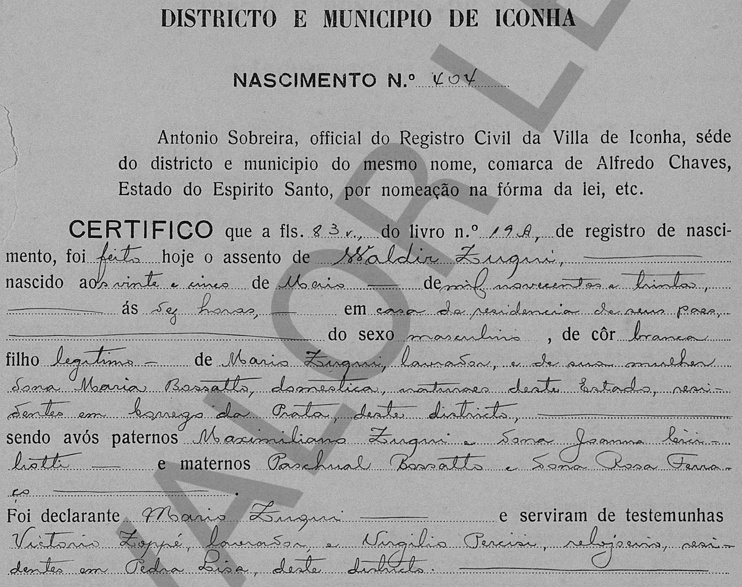 DISTRICTO E MUNICIPIO DE ICONHA
NASCIMENTO N.º 404
Antonio Sobreira, official do Registro Civil da Villa de Iconha, séde
do districto e municipio do mesmo nome, comarca de Alfredo Chaves,
Estado do Espirito Santo, por nomeação na fórma da lei, etc.
CERTIFICO que a fls. 83 v., do livro n.º 19A, de registro de nasci-
mento, foi feito hoje o assento de Waldir Zuqui,
nascido aos vinte e cinco de Maio de mil novecentos e trinta,
ás dez horas, em casa da residencia de seus paes,
do sexo masculino, de côr branca
filho legitimo de Mario Zuqui, lavrador, e de sua mulher
dona Maria Bossatto, domestica, naturaes deste Estado, resi-
dentes em Corrego da Prata, deste districto,
sendo avós paternos Maximiliano Zuqui e dona Joanna
e maternos Paschual Bossatto e dona Rosa Ferra-
ço.
Foi declarante Mario Zuqui e serviram de testemunhas
Victorio Zoppé, lavrador, e Virgilio, relojoeiro, resi-
dentes em Pedra Lisa, deste districto.
VALOR LE